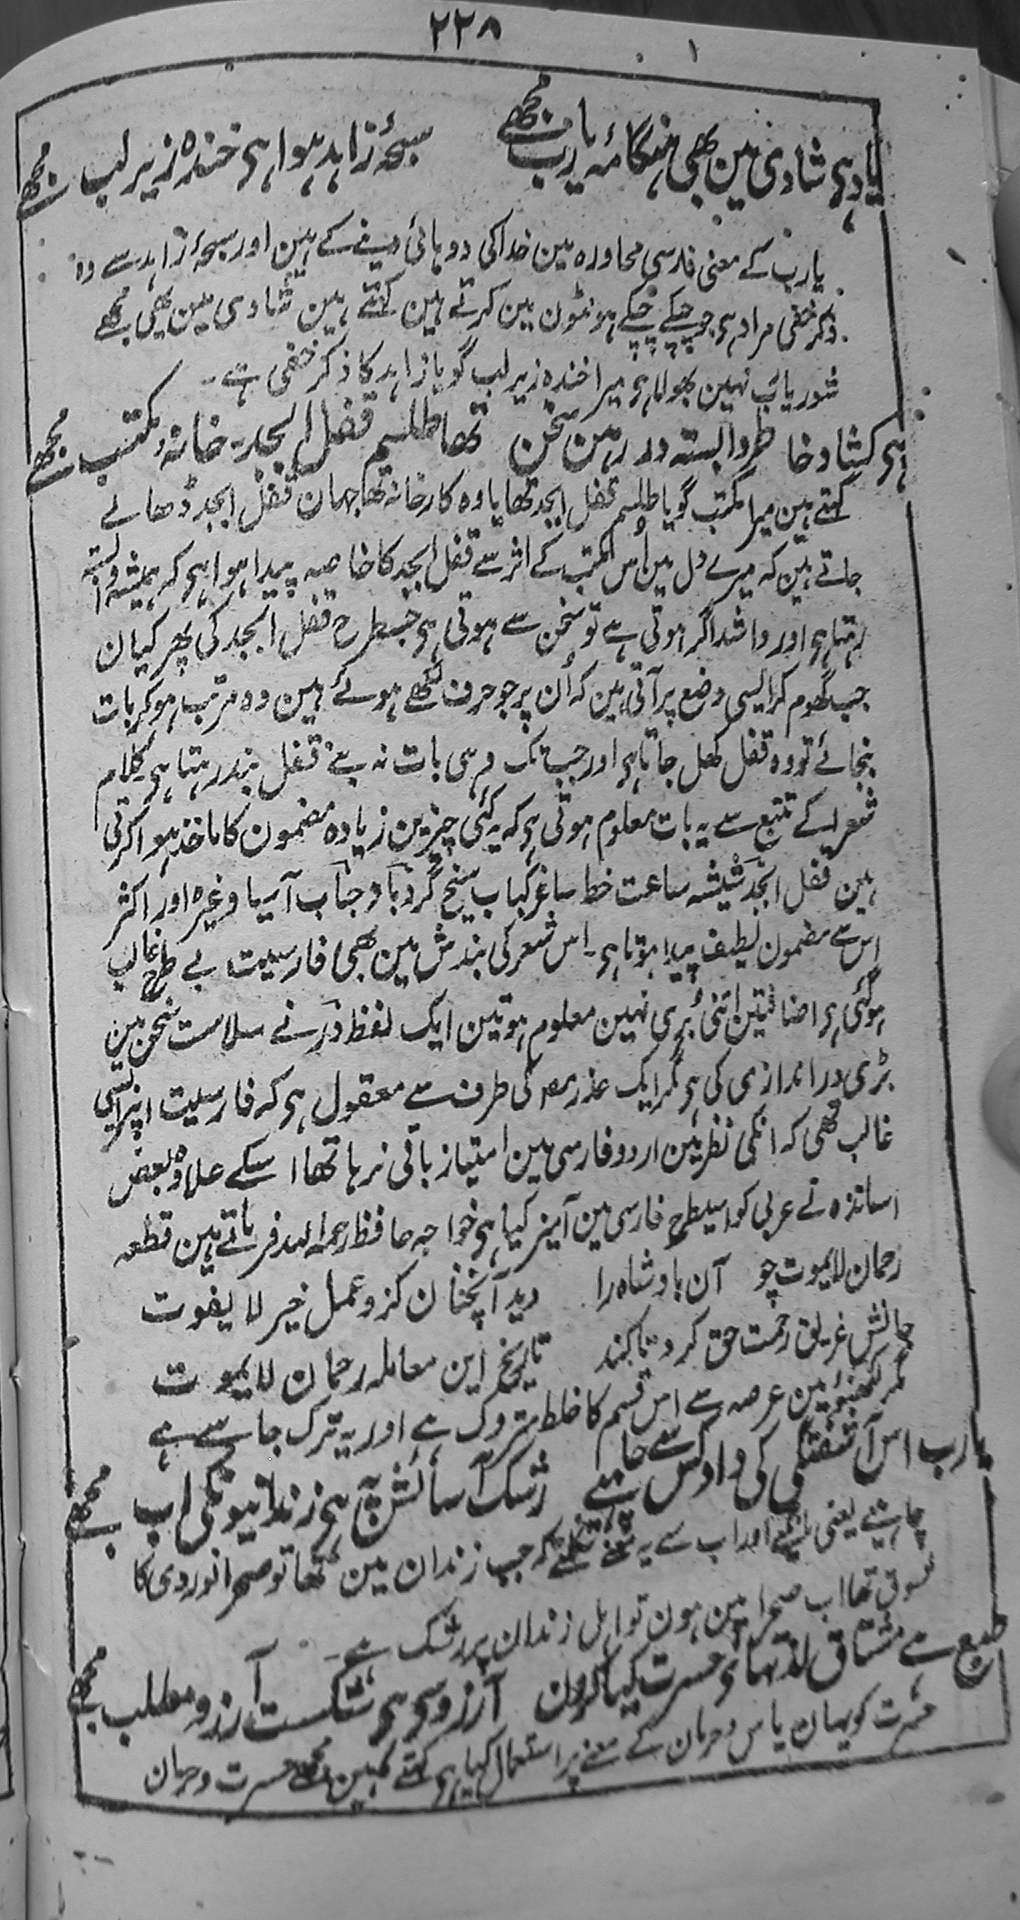 ۲۲۸
یاد ہی شادی مین بھی ہنگامۂ یارب مجھے سبحۂ زاہد ہوا ہی خندہ زیر لب مجھے
یارب کے معنی فارسی محاورہ مین خدا کی دوہائی دینے کے ہین اور سبحۂ زاہد سے وہ
ذکر خفی مراد ہی جو چپکے چپکے ہونٹون مین کرتے ہین کہتے ہین شادی مین بھی مجھے
شور یارب نہین بھولا ہی میرا خندہ زیر لب گویا زاہد کا ذکر خفی ہے۔
ہی کشاد خاطر وابستہ در رہن سخن تھا طلسم قفل ابجد خانۂ مکتب مجھے
کہتے ہین میرا مکتب گویا طلسم قفل ابجد تھا یا وہ کارخانہ تھا جہان قفل ابجد ڈھالے
جاتے ہین کہ میرے دل مین اُس مکتب کے اثر سے قفل ابجد کا خاصیہ پیدا ہوا ہی کہ ہمیشہ وابستہ
رہتا ہی اور واشد اگر ہوتی ہے تو سخن سے ہوتی ہی جسطرح قفل ابجد کی پھرکیان
جب گھوم کر ایسی وضع پر آتی ہین کہ اُن پر جو حرف لکھے ہوئے ہین وہ مرتب ہوکر بات
بنجائے تو وہ قفل کھل جاتا ہی اور جب تک وہی بات نہ بنے قفل بند رہتا ہی کلام
شعرا کے تتبع سے یہ بات معلوم ہوتی ہی کہ یہ کئی چیزین زیادہ مضمون کا ماخذ ہوا کرتی
ہین قفل ابجد شیشہ ساعت خط ساغر کباب سیخ گردباد حباب آسیا وغیرہ اور اکثر
اس سے مضمون لطیف پیدا ہوتا ہی۔ اس شعر کی بندش مین بھی فارسیت بے طرح غالب
ہوگئی ہی اضافتین اتنی بُری نہین معلوم ہوتین ایک لفظ در نے سلاست سخن مین
بڑی دراندازی کی ہی مگر ایک عذر مصہ کی طرف سے معقول ہی کہ فارسیت اپنر ایسی
غالب تھی کہ انکی نظر مین اردو فارسی مین امتیاز باقی نرہا تھا اسکے علاوہ بعض
اساتذہ نے عربی کو اسیطرح فارسی مین آمیز کیا ہی خواجہ حافظ رحمہ اللہ فرماتے ہین قطعہ
رحمان لایموت چو آن بادشاہ را دید آنچنان کزو عمل خیر لا یفوت
جانش غریق رحمت حق کرد تا کند تاریخ این معاملہ رحمان لایموت
مگر لکھنؤ مین عرصہ سے اس قسم کا خلط متروک ہے اور یہ ترک جاسے ہے
یارب اس آشفتگی کی داد کس سے چاہیے رشک آسائش پہ ہی زندانیونکی اب مجھے
چاہئے یعنی لیجئے اور اب سے یہ معنے نکلے کہ جب زندان مین تھا تو صحرا نوردی کا
شوق تھا اب صحرا مین ہون تو اہل زندان پر رشک ہے۔
طبع ہے مشتاق لذتہائے حسرت کیا کرون آرزو سی ہی شکست آرزو مطلب مجھے
حسرت کو یہان یاس و حرمان کے معنے پر استعمال کیا ہی کہتے ہین مجھے حسرت و حرمان